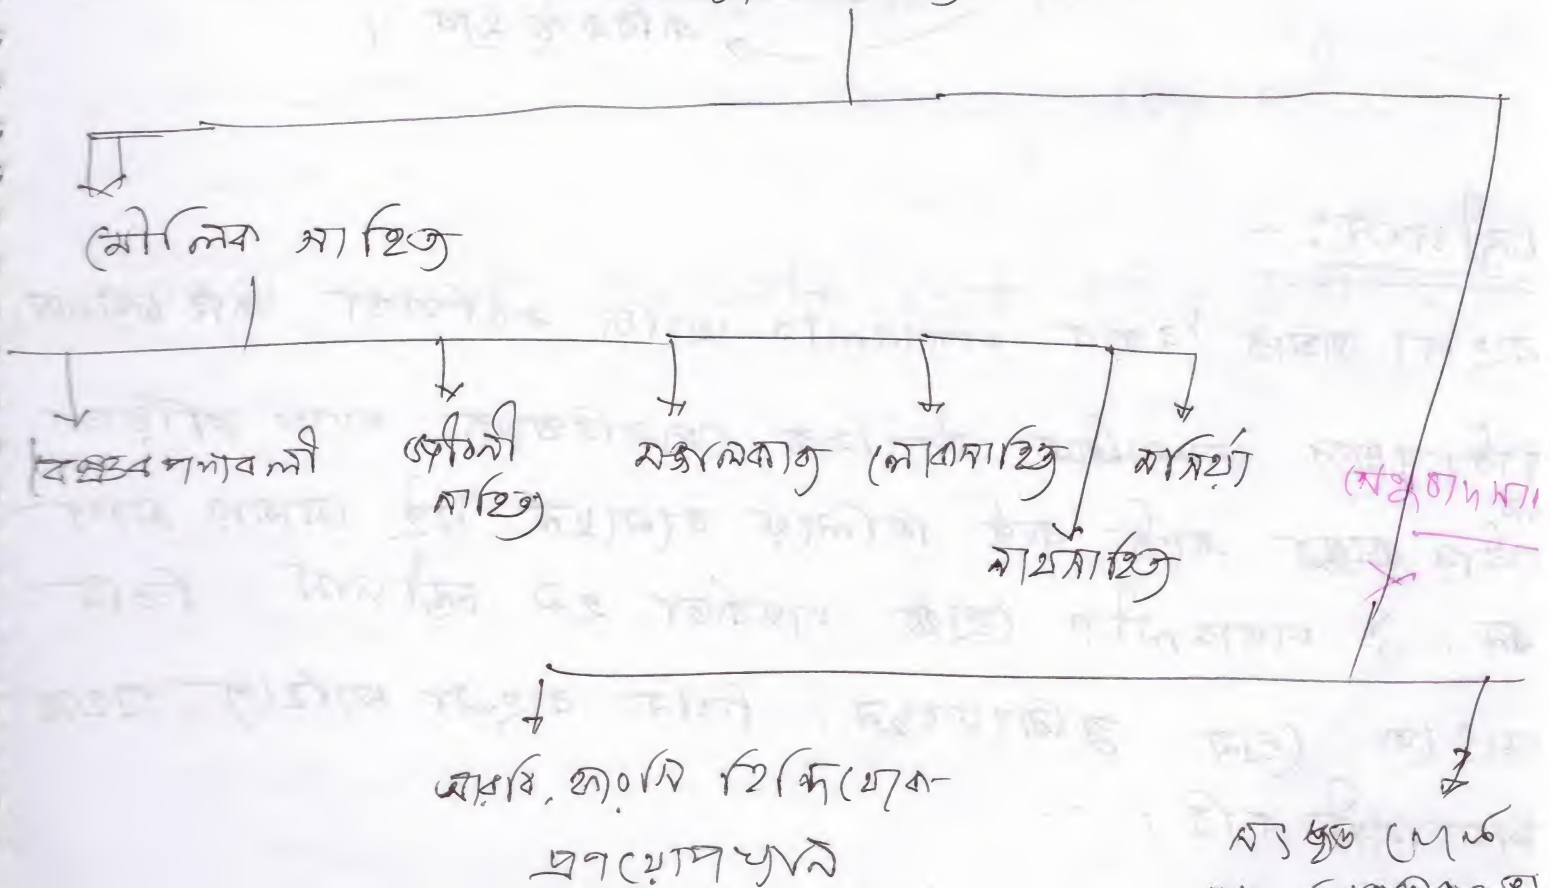 মৌলিক সাহিত্য
বৈষ্ণব পদাবলী
জীবনী
সাহিত্য
মঙ্গলকাব্য
লোকসাহিত্য
মর্সিয়া
নাথসাহিত্য
অনুবাদ সা
আরবি, ফারসি হিন্দি থেকে-
প্রণয়োপাখ্যান
সংস্কৃত থেকে